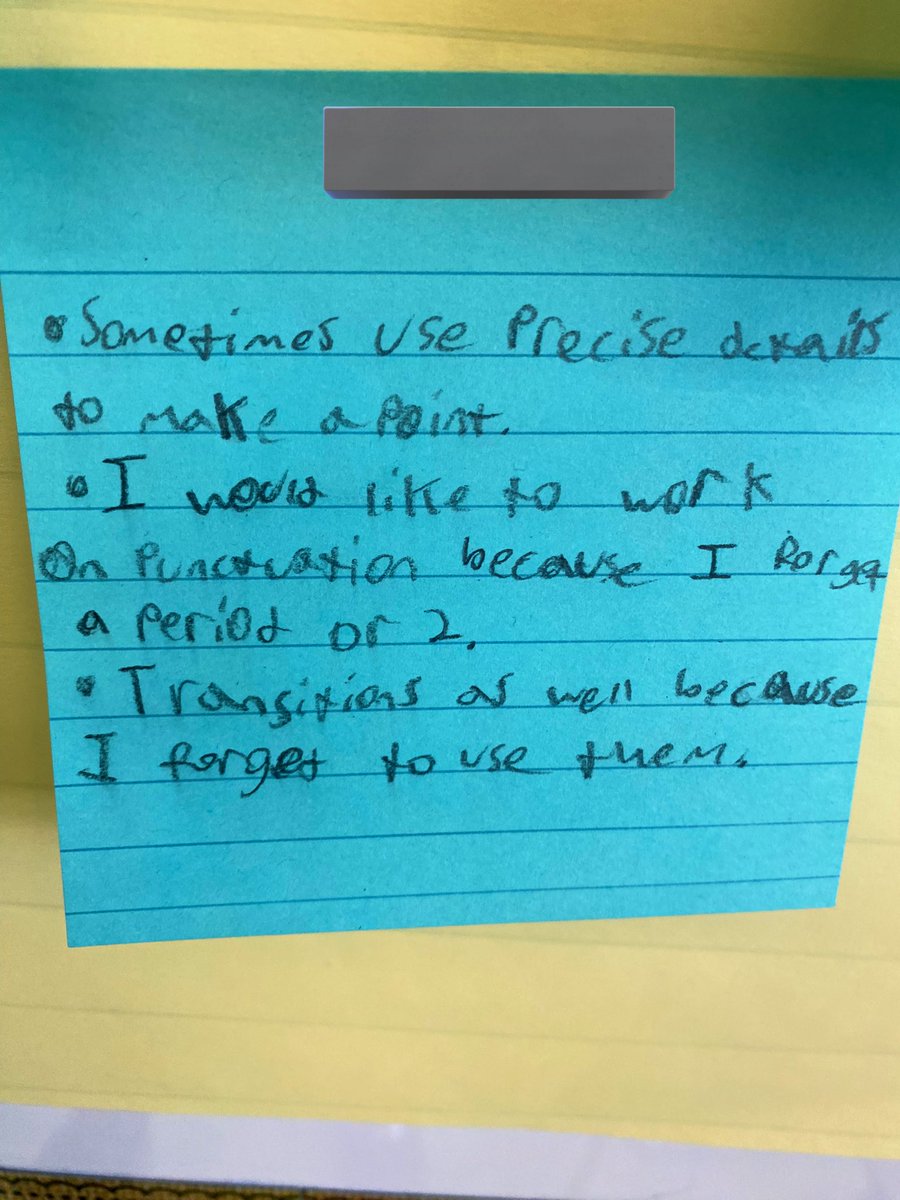 • Sometimes use Precise details
to make a Point.
• I would like to work
On Punctuation because I Forget
a Period or 2.
• Transitions as well because
I forget to use them.